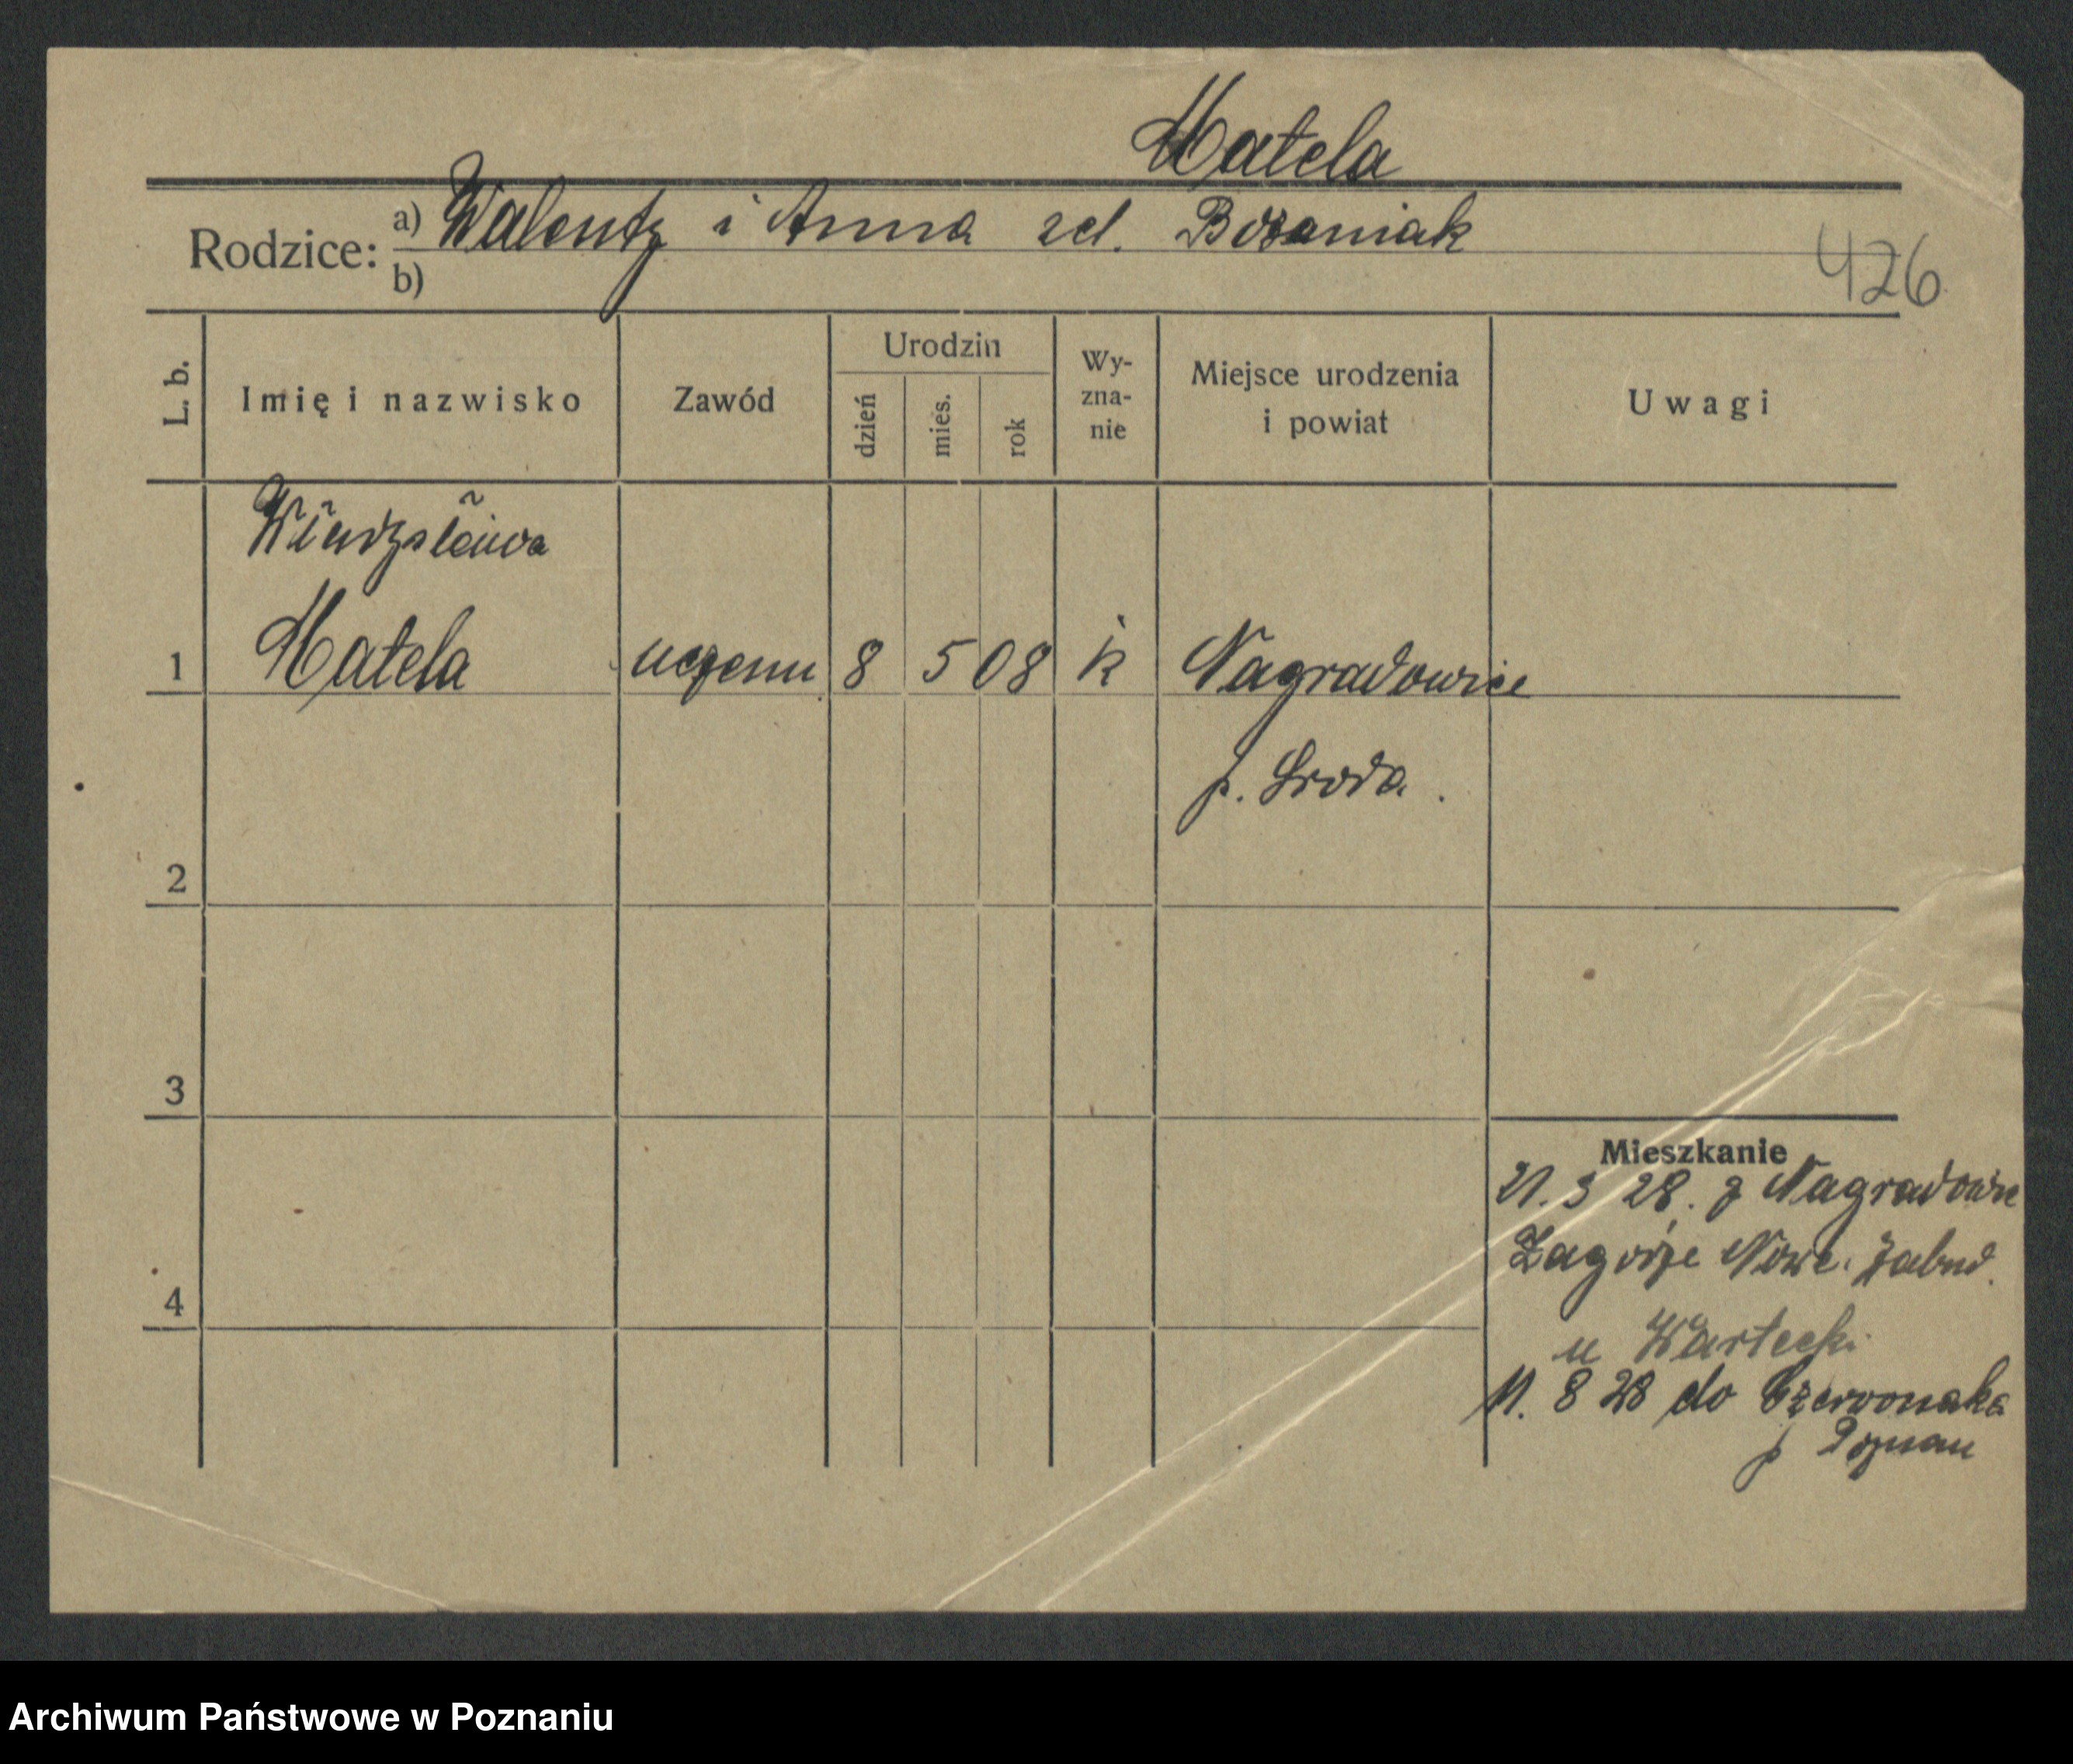 Matela
Rodzice: a) Walenty i Anna zd. Bozaniak
b)
426
L. b.
Imię i nazwisko
Zawód
Urodzin
dzień
mies.
rok
Wy-
zna-
nie
Miejsce urodzenia
i powiat
Uwagi
Władysława
1 Matela uczenn 8 5 08 k Nagradowice
p. Sroda.
2
3
4
Mieszkanie
21. 3 28. z Nagradowic
Zagórze Nowe.
u Wartecki
11. 8 28 do Czerwonaka
p Poznan
Archiwum Państwowe w Poznaniu